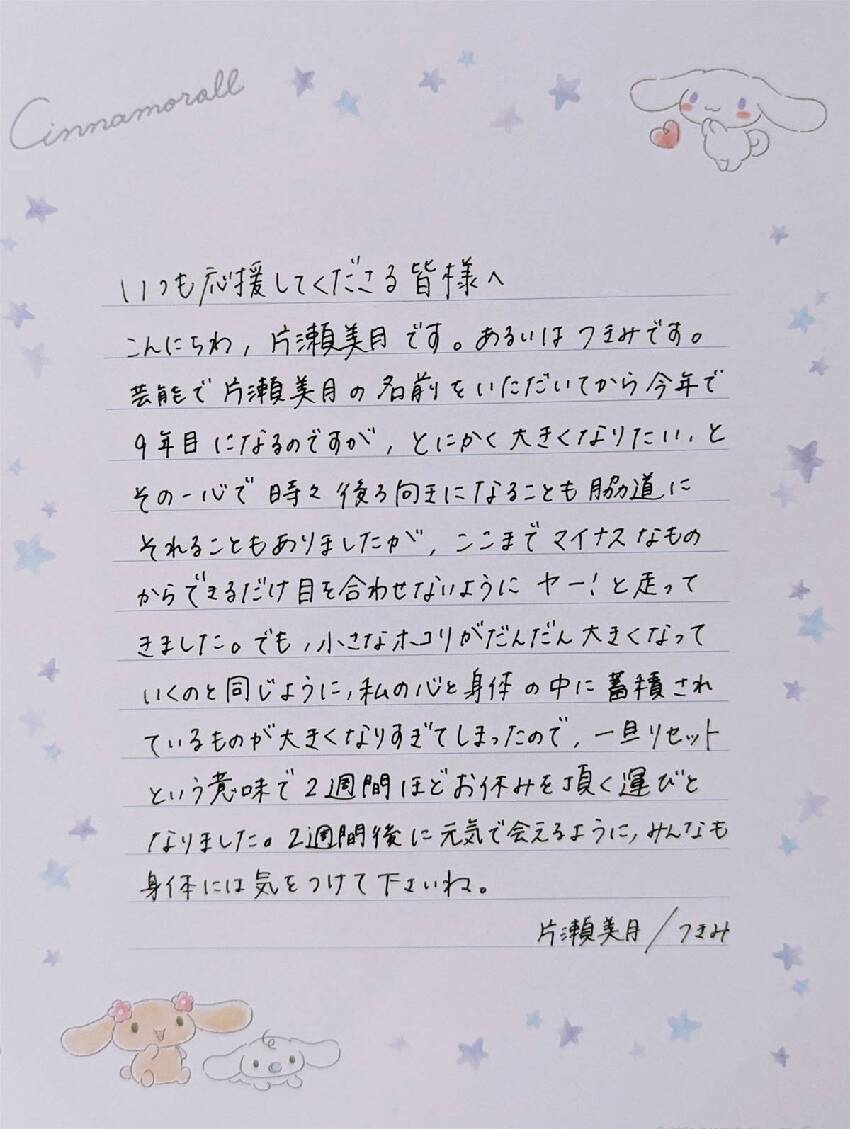 Cinnamoroll
いつも応援してくださる皆様へ
こんにちわ, 片瀬美月です。あるいはつきみです。
芸能で片瀬美月の名前をいただいてから今年で
9年目になるのですが, とにかく大きくなりたい, と
その一心で時々後ろ向きになることも脇道に
それることもありましたが, ここまでマイナスなもの
からできるだけ目を合わせないように ヤー! と走って
きました。でも, 小さなホコリがだんだん大きくなって
いくのと同じように, 私の心と身体の中に蓄積され
ているものが大きくなりすぎてしまったので, 一旦リセット
という意味で2週間ほどお休みを頂く運びと
なりました。2週間後に元気で会えるように, みんなも
身体には気をつけて下さいね。
片瀬美月/つきみ